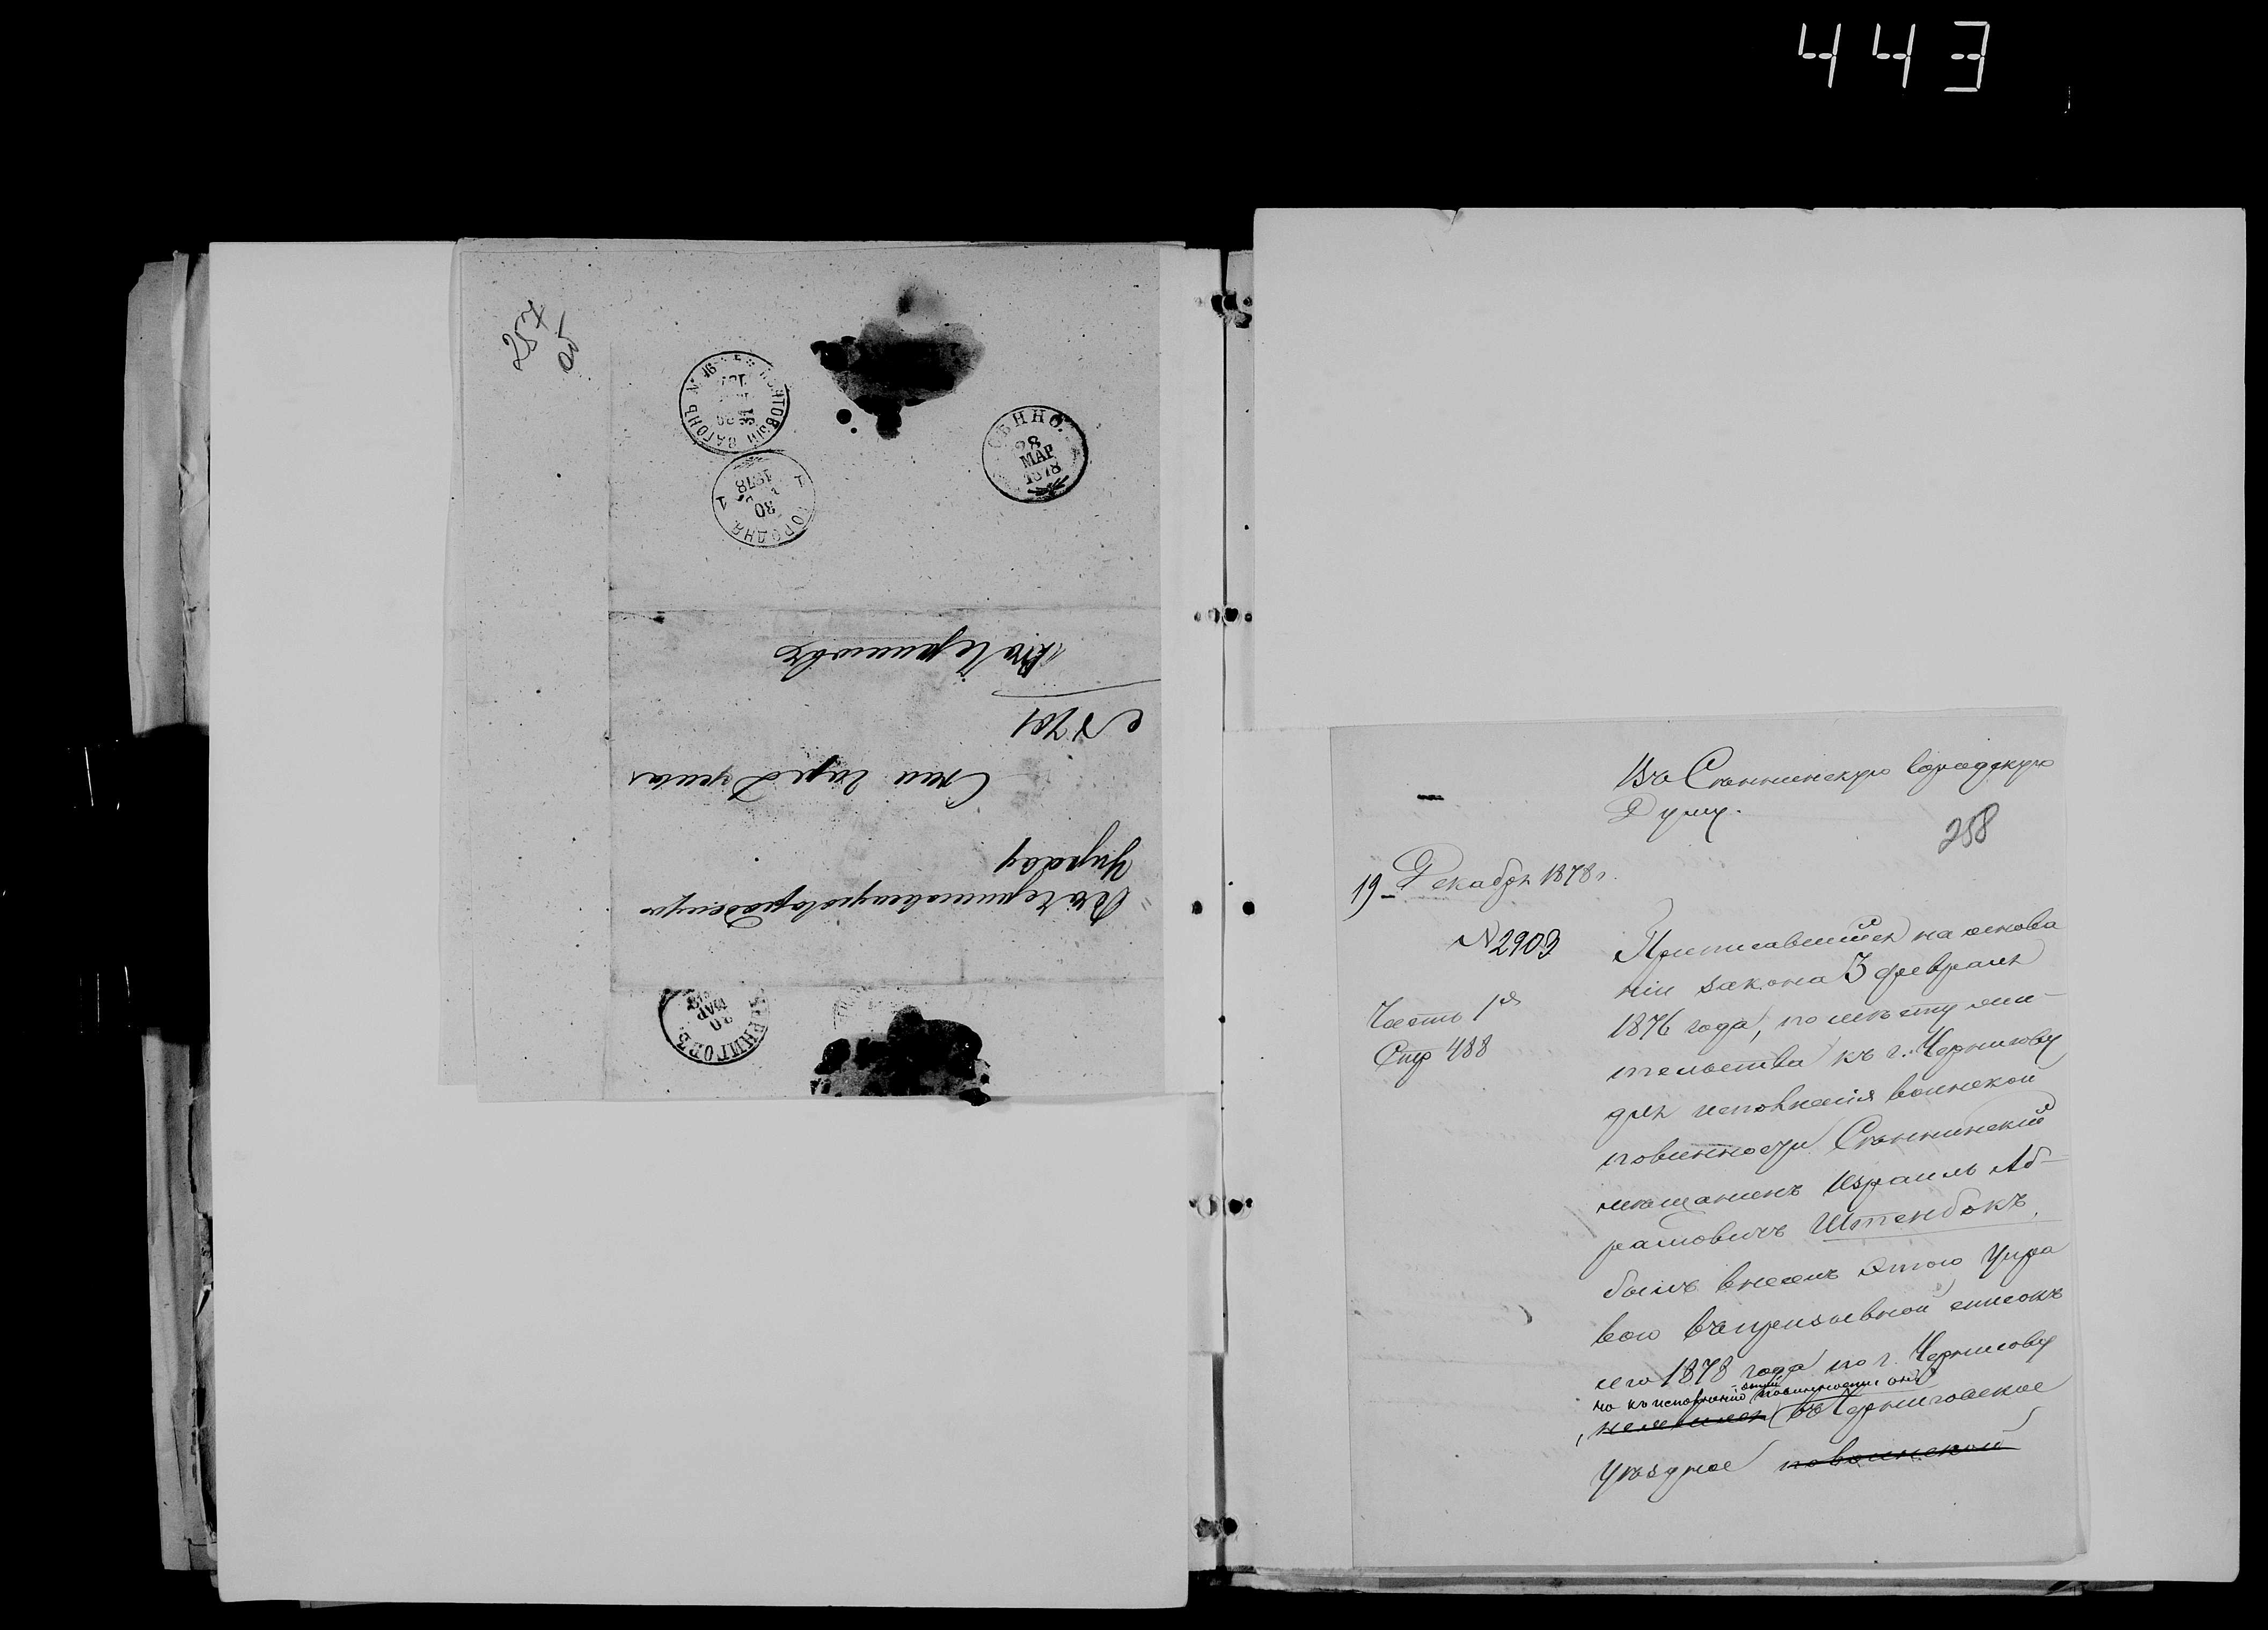 443
257
об
ПОЧТОВЫЙ ВАГОНЪ №
ГОРОДНЯ
30
1878
1
1
СѢННО.
28
МАР
1878
Въ Черниговъ
№ 701
Сѣн Город Думы
Въ Черниговскую Городскую
Управу
ЧЕРНИГОВЪ.
30
МАР
Въ Сѣннинскую Городскую
Думу.
258
19 Декабря 1878 г.
№ 2903
Часть 1я
Стр 488
Приписавшийся на основа
ніи закона 3 февраля
1876 года, по мѣсту жи-
тельства къ г. Чернигову
для исполненія воинской
повинности Сѣннинскій
мѣщанинъ Израиль Аб-
рамовичъ Штенбокъ,
былъ внесенъ этою Упра
вою въ призывной списокъ
сего 1878 года по г. Чернигову
но къ исполненію повинности онъ
, не явился въ Черниговское
Уѣздное по воинской